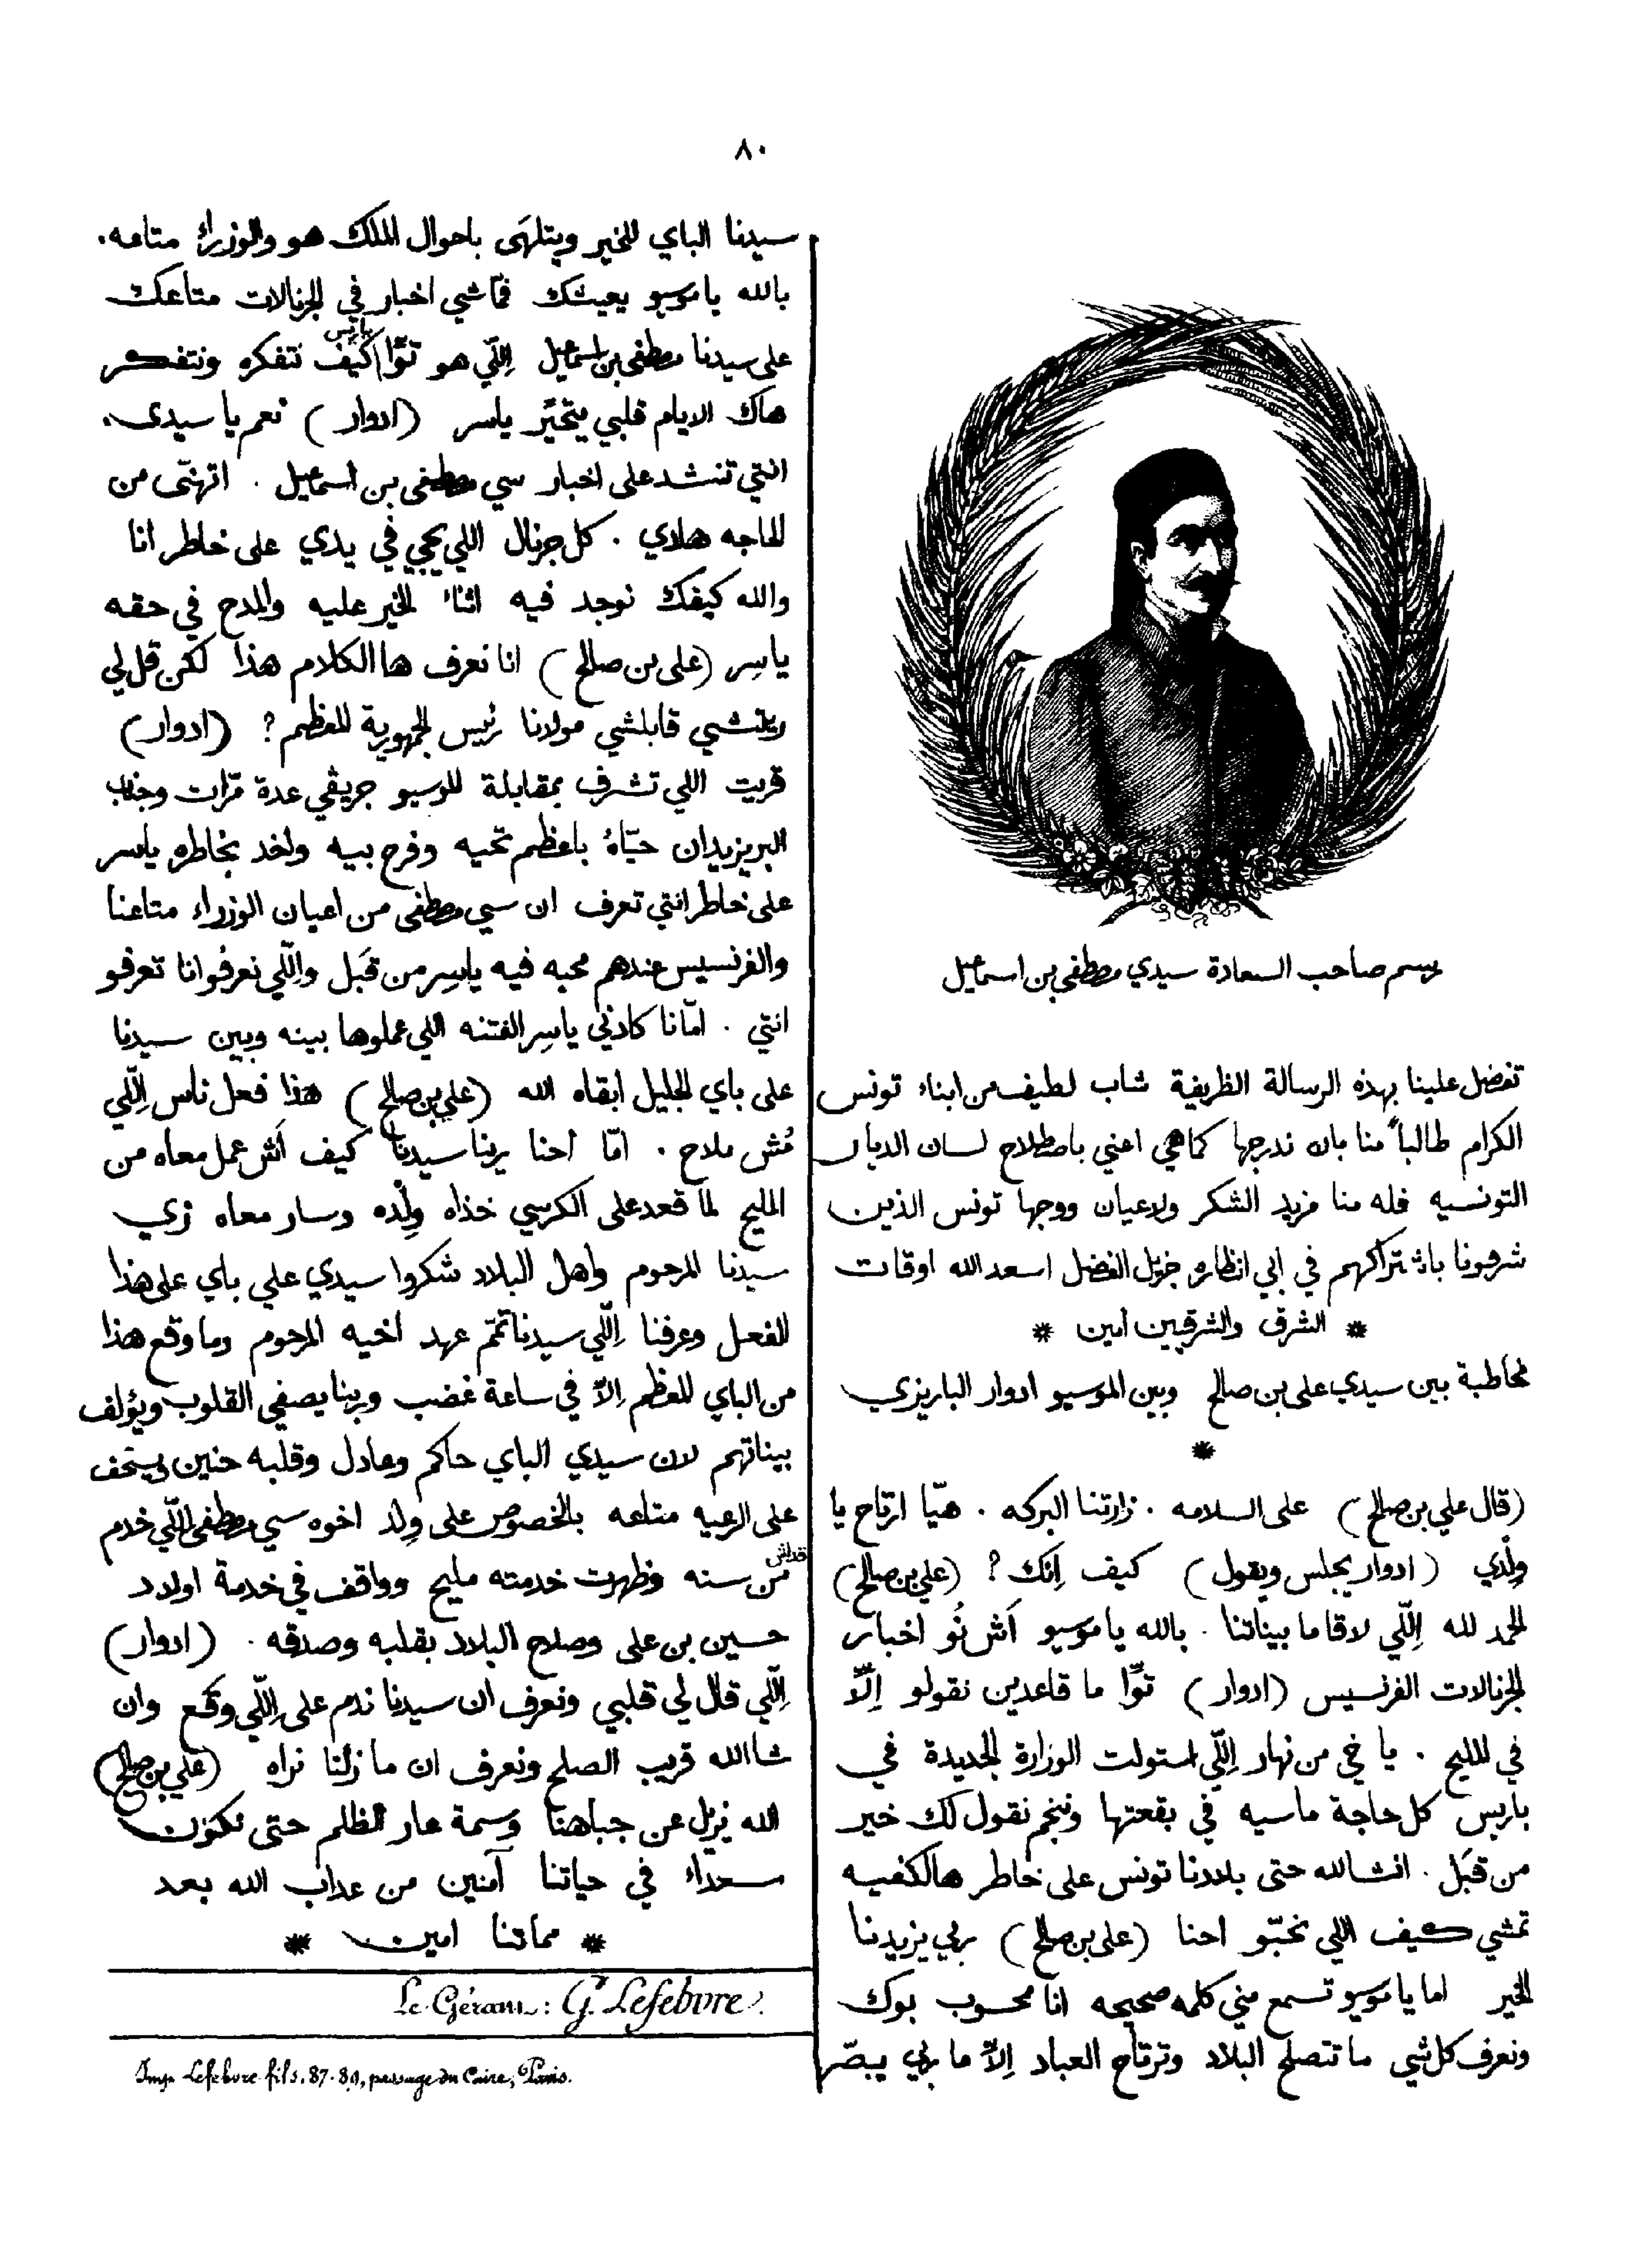 ٨٠
رسم صاحب السعادة سيدي مصطفى بن اسماعيل
تفضل علينا بهذه الرسالة الظريفة شاب لطيف من ابناء تونس
الكرام طالباً منا بان ندرجها كما هي اعني باصطلاح لسان الديار
التونسيه فله منا مزيد الشكر ولاعيان ووجها تونس الذين
شرفونا باشتراكهم في ابي نظاره جزيل الفضل اسعد الله اوقات
* الشرق والشرقيين أمين *
مخاطبة بين سيدي على بن صالح وبين الموسيو ادوار الباريزي
*
(قال علي بن صالح) على السلامه . زارتنا البركه . هيّا ارتاح يا
وِلْدي (ادوار يجلس ويقول) كيف اِنك ? (علي بن صالح)
الحمد لله اِللّي لاقا ما بيناتنا . بالله يا موسيو اَش نُو اخبار
الجرنالات الفرنسيس (ادوار) توّا ما قاعدين نقولو اِلّا
في المليح . يا خي من نهار اِللّي استولت الوزارة الجديدة في
باريس كل حاجة ماسيه في بقعتها وننجم نقول لك خير
من قبَل . انشالله حتى بلادنا تونس على خاطر هالكفيه
تمشي كيف اللي نحبّو احنا (على بن صالح) ربي يزيدنا
الخير اما يا موسيو تسمع مني كلمه صحيحه انا محسوب بوك
ونعرف كل شي ما تتصلح البلاد وترتاح العباد اِلاّ ما ربي يبصّر
سيدنا الباي للخير ويتلهَى باحوال الملك هو والوزراء متاعه .
بالله يا موسيو يعيشك فمّاشي اخبار في الجرنالات متاعك
على سيدنا مصطفى بن اسماعيل اِللّي هو توّا باريس كيف نتفكره ونتفكر
هاك الايام قلبي يتحيَّر ياسر (ادوار) نعم يا سيدي .
انتي تنشد على اخبار سي مصطفى بن اسماعيل . اتهنّى من
الحاجه هاذي . كل جرنال اللي يجي في يدي على خاطر انا
والله كيفك نوجد فيه اثناء الخير عليه والمدح في حقه
ياسِر (على بن صالح) انا نعرف ها الكلام هذا لكن قل لي
قابلشي مولانا رئيس الجمهورية المعظم ? (ادوار)
قريت اللي تشرف بمقابلة الموسيو جريڤي عدة مرّات وجناب
البريزيدان حيّاهُ باعظم تحيه وفرح بيه واخد بخاطره ياسر
على خاطر انتي تعرف ان سي مصطفى من اعيان الوزراء متاعنا
والفرنسيس عندهم محبه فيه ياسِر من قبَل واِللّي نعرفو انا تعرفو
انتي . امّانا كادني ياسِر الفتنه اللي عملوها بينه وبين سيدنا
على باي الجليل ابقاه الله (علي بن صالح) هذا فعل ناس اِللّي
مُش ملاح . امّا احنا يرينا سيدنا كيف اَش عمل معاه من
المليح لمّا قعد على الكرسي خذاه وِلْده وسار معاه زي
سيدنا المرحوم واهل البلاد شكروا سيدي علي باي على هذا
الفعل وعرفنا اِللّي سيدنا تمّم عهد اخيه المرحوم وما وقع هذا
من الباي المعظم اِلاّ في ساعة غضب وربنا يصفي القلوب ويؤلف
بيناتهم لان سيدي الباي حاكم وعادل وقلبه حنين
على الرعيه متاعه بالخصوص على وِلد اخوه سي مصطفى اللّي خدم
قداش من سنه وظهرت خدمته مليح وواقف في خدمة اولاد
حسين بن على وصلاح البلاد بقلبه وصدقه . (ادوار)
اِللّي قال لي قلبي ونعرف ان سيدنا ندم على اِللّي وقع وان
شا الله قريب الصلح ونعرف ان ما زلنا نراه (علي بن صالح)
الله يزيل عن جباهنا وسمة عار الظلم حتى نكون
سعداء في حياتنا آمنين من عذاب الله بعد
* مماتنا امين *
Le Gérant : G. Lefebvre.
Imp. Lefebvre fils. 87-89, passage du Caire, Paris.